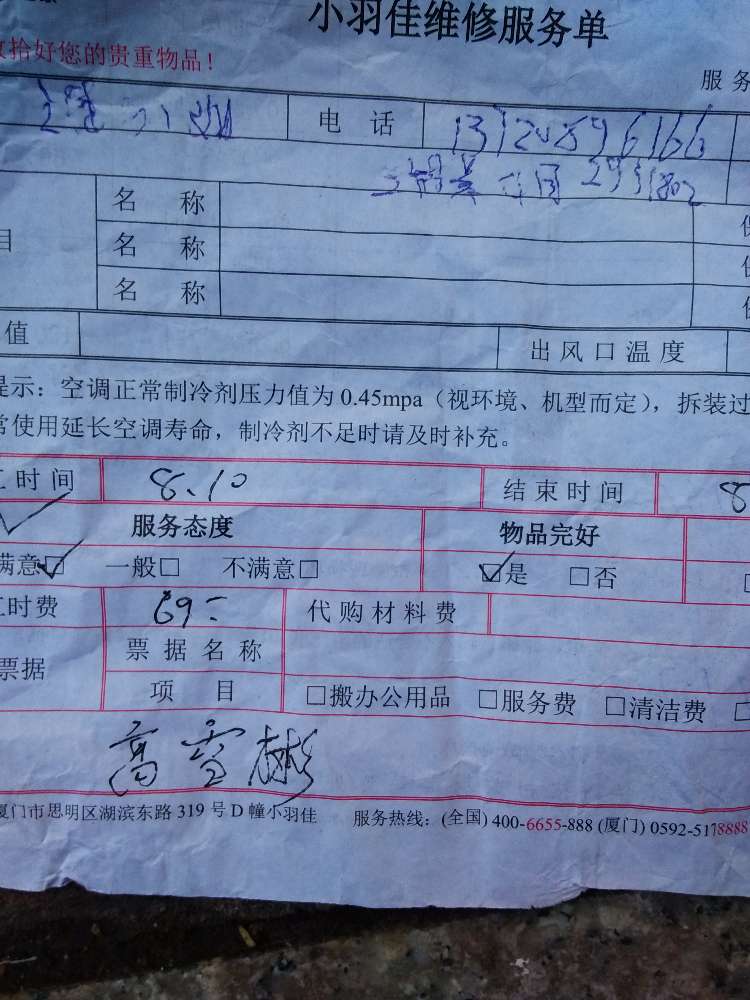 小羽佳维修服务单
拾好您的贵重物品！
服务
电 话 13124896166
2931802
名 称
目 名 称
名 称
值 出风口温度
提示：空调正常制冷剂压力值为0.45mpa（视环境、机型而定），拆装过
常使用延长空调寿命，制冷剂不足时请及时补充。
工时间 8.10 结束时间 8
服务态度 物品完好
满意☑ 一般□ 不满意□ ☑是 □否
工时费 69- 代购材料费
票据 票据名称
项 目 □搬办公用品 □服务费 □清洁费
高雪彬
厦门市思明区湖滨东路319号D幢小羽佳 服务热线：(全国) 400-6655-888 (厦门) 0592-5178888